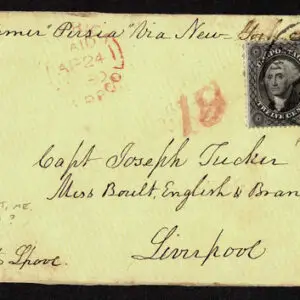 "Persia" Via New-York
PAID
AP 24
19
U.S. POSTAGE
TWELVE CEN
Capt Joseph Tucker
Miss Boult, English & Bran
Liverpool